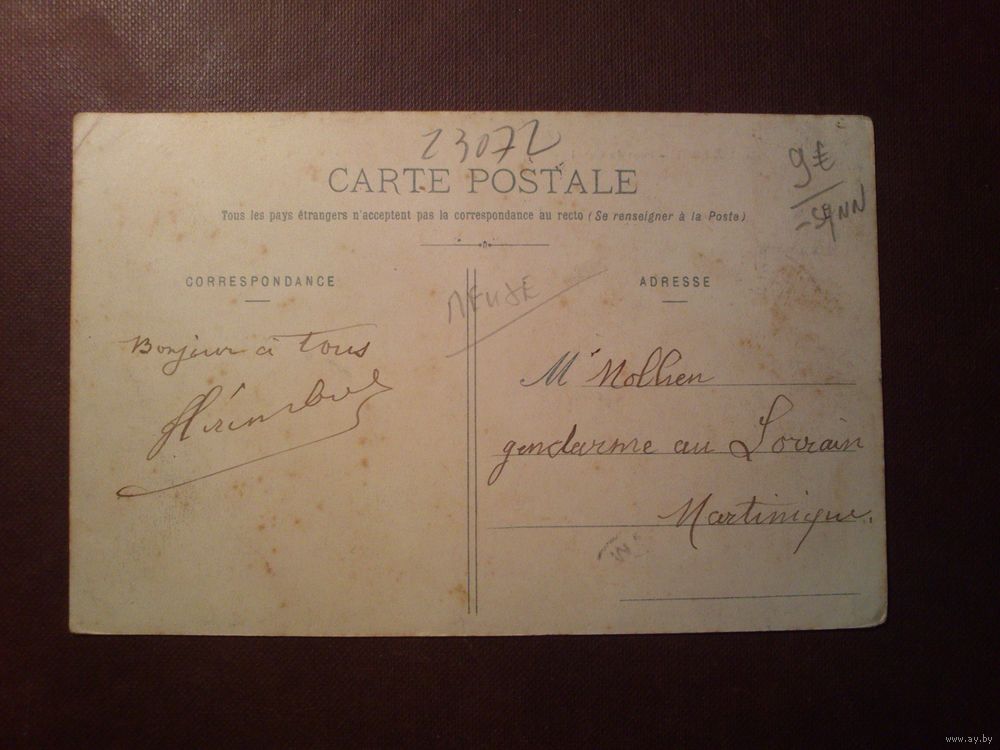 23072
9€
CARTE POSTALE
Tous les pays étrangers n'acceptent pas la correspondance au recto (Se renseigner à la Poste)
CORRESPONDANCE
MEUSE
ADRESSE
Bonjour à tous
Mr Mollien
gendarme au Lorrain
Martinique.
www.ay.by